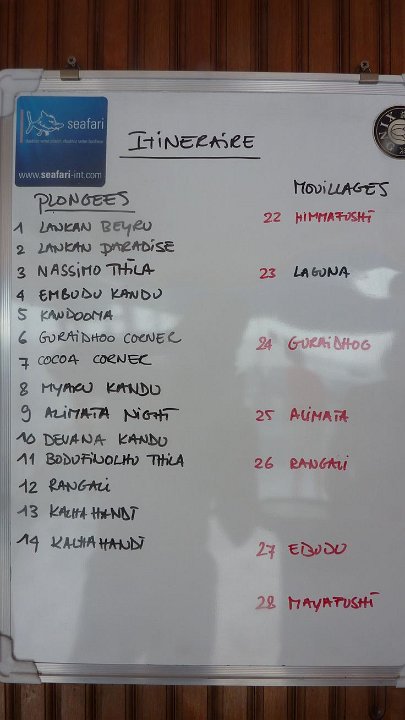 seafari
www.seafari-int.com
ITINERAIRE
PLONGEES
1 LANKAN BEYRU
2 LANKAN PARADISE
3 NASSIMO THILA
4 EMBUDU KANDU
5 KANDOOMA
6 GURAIDHOO CORNER
7 COCOA CORNER
8 MYARU KANDU
9 ALIMATA NIGHT
10 DEVANA KANDU
11 BODUFINOLHU THILA
12 RANGALI
13 KALHAHANDI
14 KALHAHANDI
MOUILLAGES
22 HIMMAFUSHI
23 LAGUNA
24 GURAIDHOO
25 ALIMATA
26 RANGALI
27 EBUDU
28 MAYAFUSHI